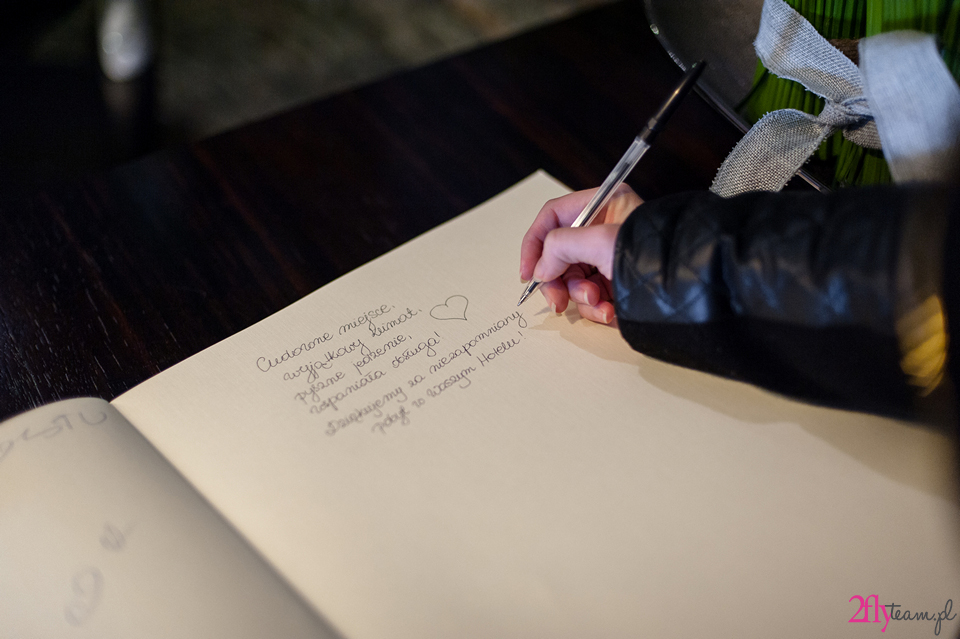 Cudowne miejsce,
wyjątkowy klimat.
Pyszne jedzenie,
wspaniała obsługa!
Dziękujemy za niezapomniany
pobyt w Waszym Hotelu!
2flyteam.pl